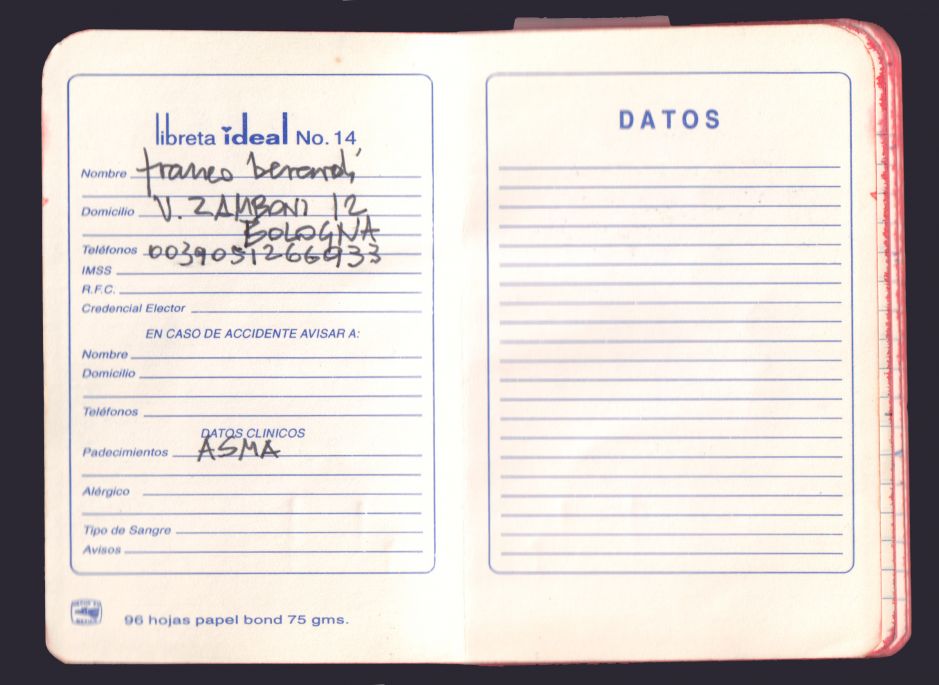 libreta ideal No. 14
Nombre franco berardi
Domicilio V. ZAMBONI 12
BOLOGNA
Teléfonos 0039051266933
IMSS
R.F.C.
Credencial Elector
EN CASO DE ACCIDENTE AVISAR A:
Nombre
Domicilio
Teléfonos
DATOS CLINICOS
Padecimientos ASMA
Alérgico
Tipo de Sangre
Avisos
HECHO EN
MEXICO
96 hojas papel bond 75 gms.
DATOS